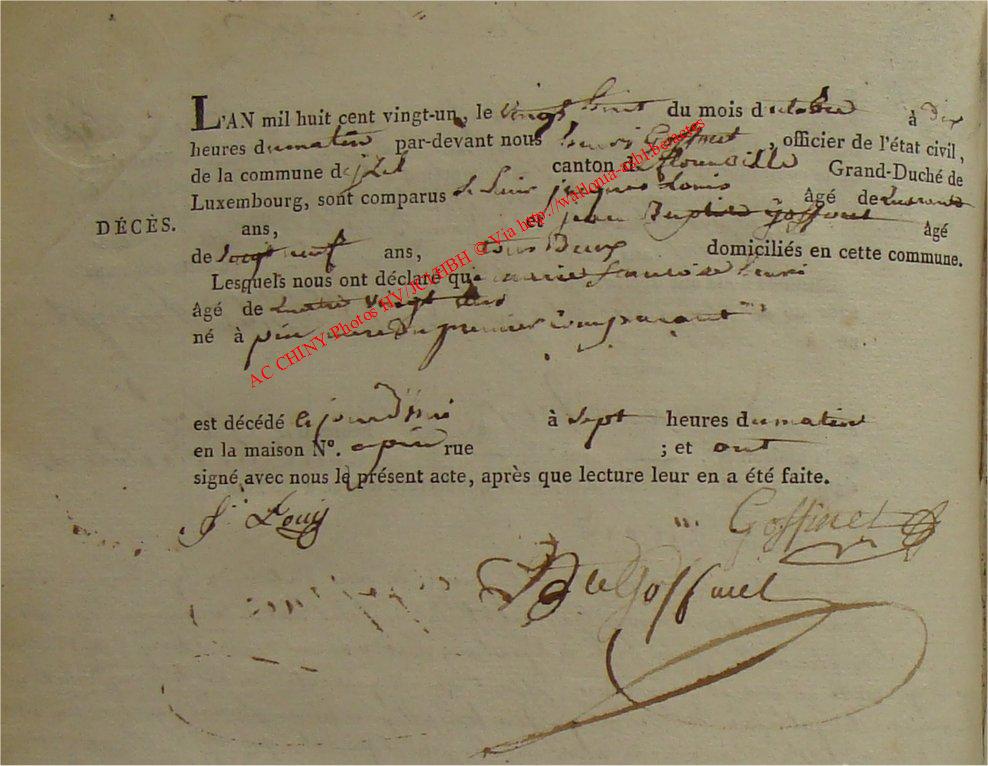 L'AN mil huit cent vingt-un, le vingt huit du mois d'octobre à dix
heures du matin par-devant nous henri Goffinet, officier de l'état civil,
de la commune d'izel canton de florenville Grand-Duché de
Luxembourg, sont comparus Le Sieur jacques Louis âgé de
DÉCÈS. ans, et jean Baptiste Goffinet âgé
de ans, tous Deux domiciliés en cette commune.
Lesquels nous ont déclaré que marie henri
âgé de quatre vingt ans
né à pin mere du premier comparant
est décédé le jourd'hui à sept heures du matin
en la maison N°. a pin rue ; et ont
signé avec nous le présent acte, après que lecture leur en a été faite.
J. Louis Goffinet
Goffinet
AC CHINY-Photos HV/JCVHBH @ Via http://wallonia-mbl.be/actes